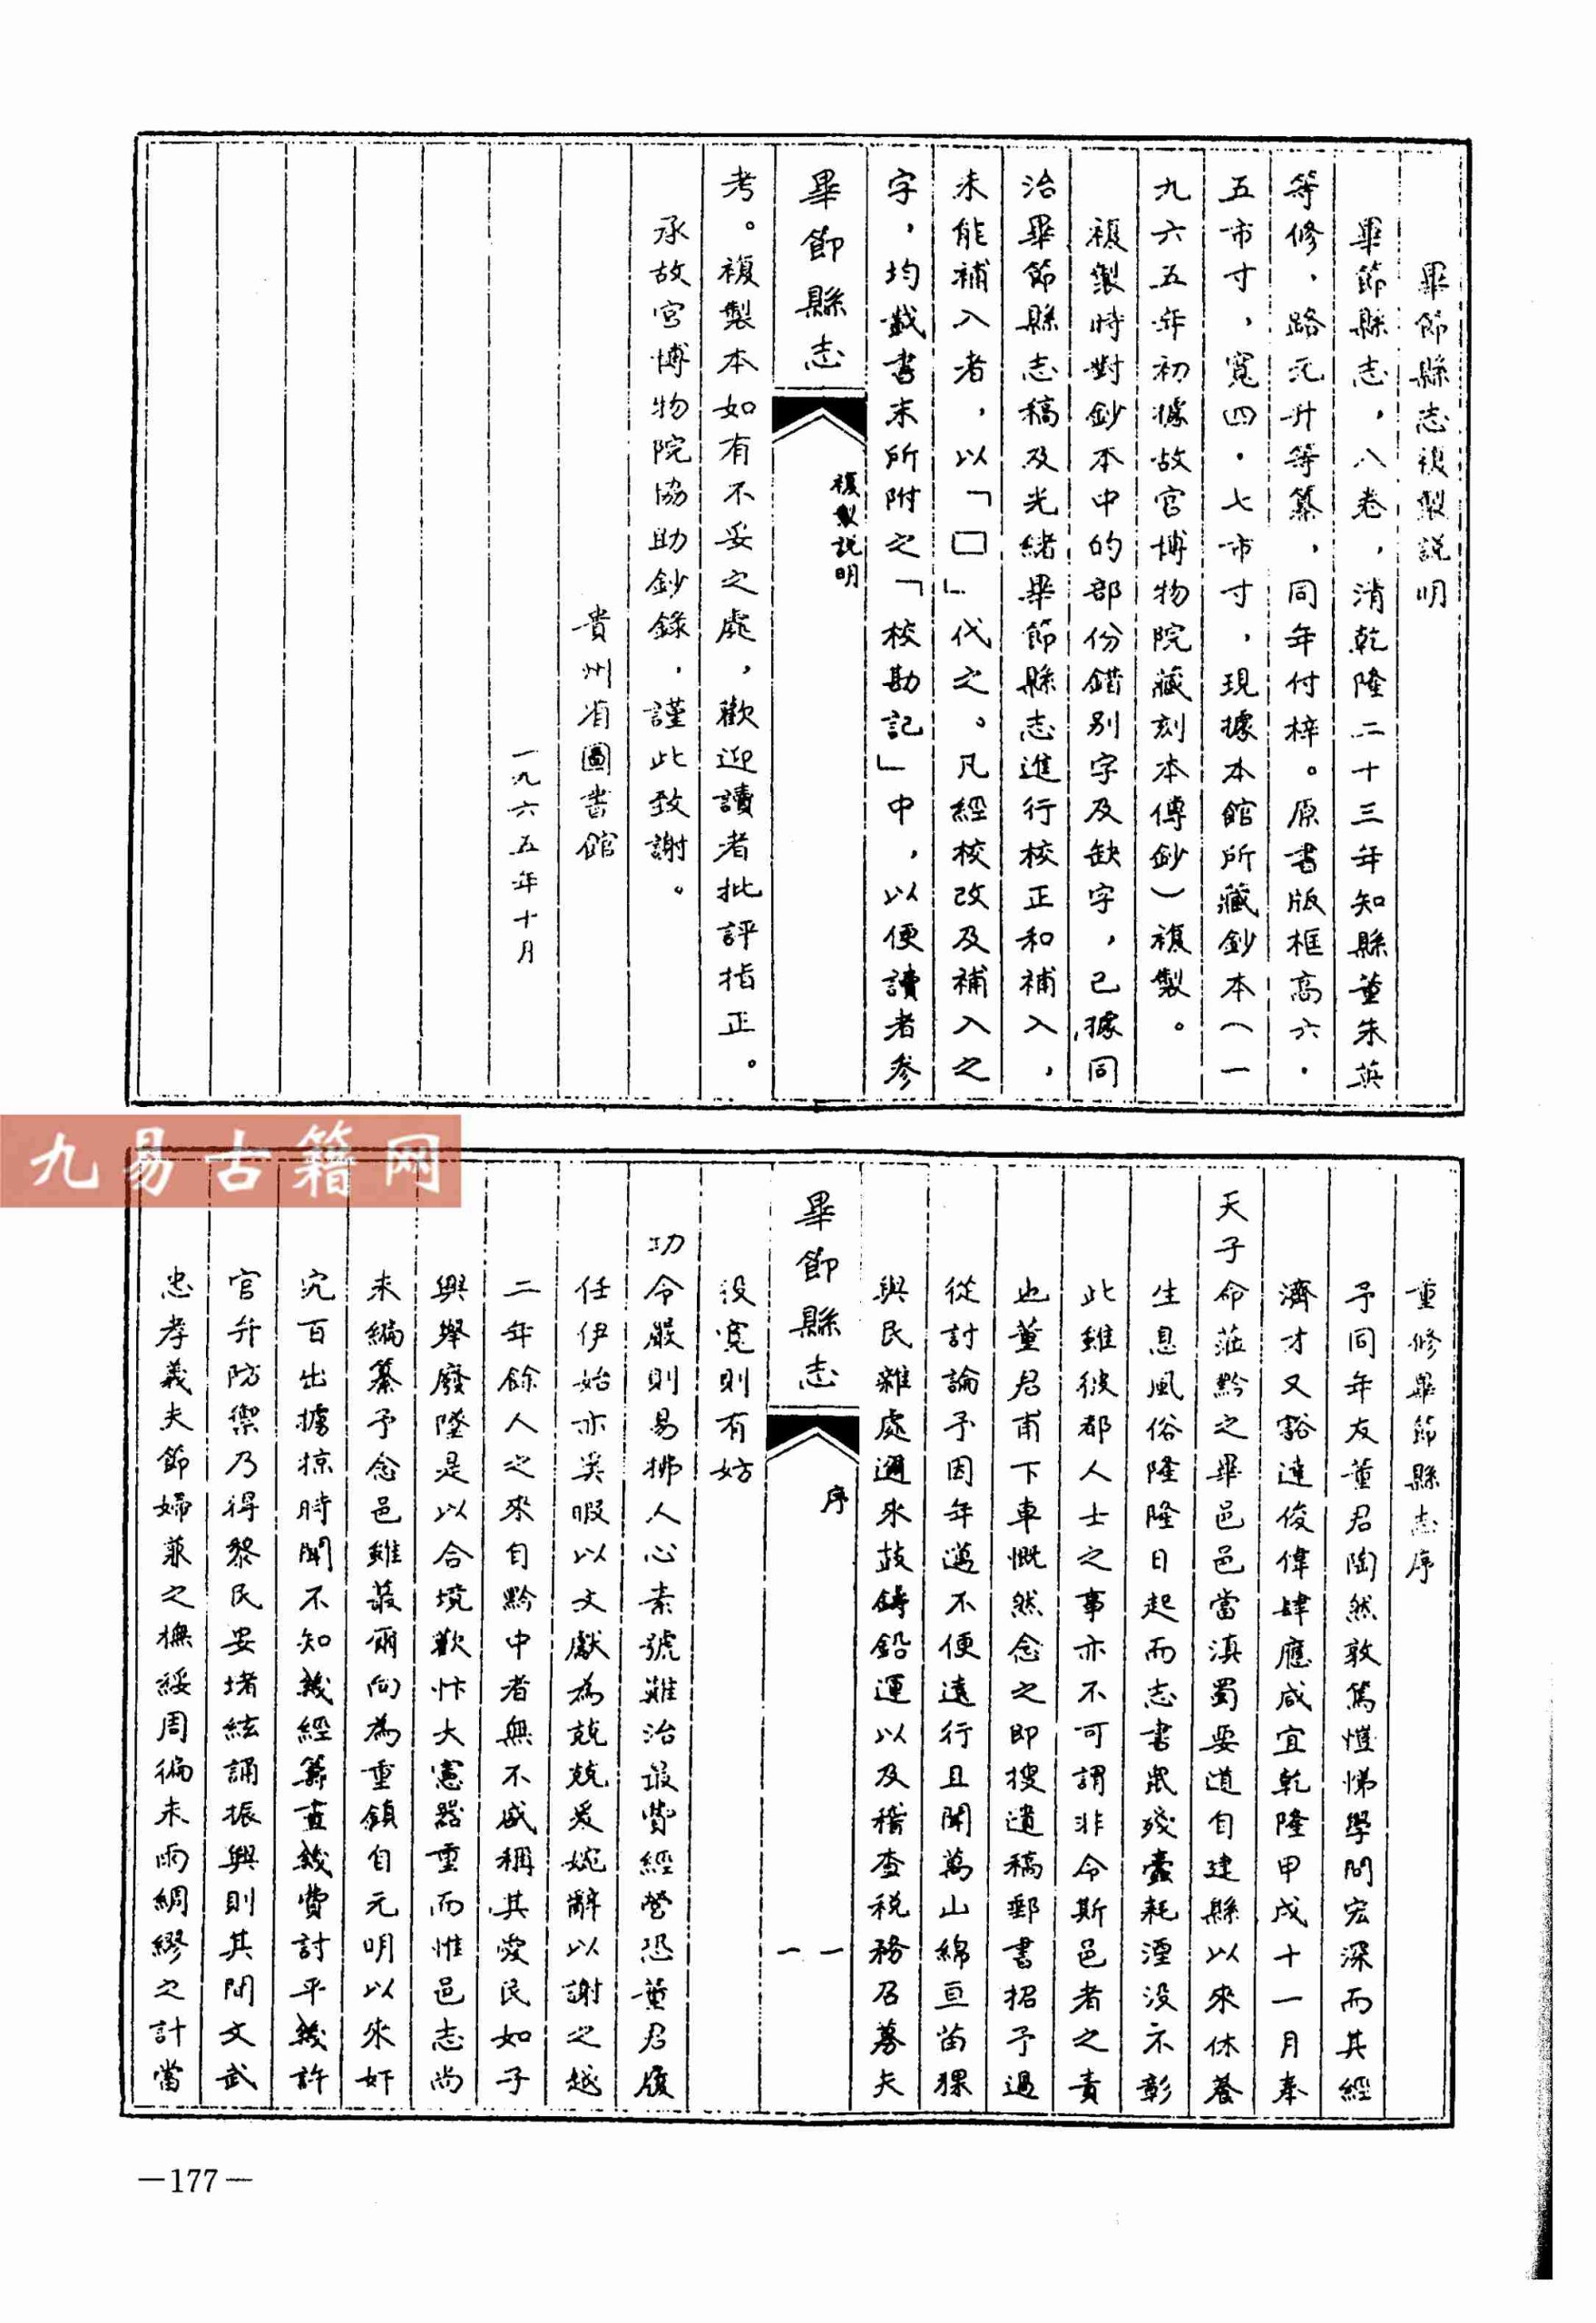 畢節縣志複製説明
畢節縣志，八卷，清乾隆二十三年知縣董朱英
等修，路元升等纂，同年付梓。原書版框高六．
五市寸，寬四．七市寸，現據本館所藏鈔本（一
九六五年初據故宮博物院藏刻本傳鈔）複製。
複製時對鈔本中的部份錯別字及缺字，已據同
治畢節縣志稿及光緒畢節縣志進行校正和補入，
未能補入者，以「□」代之。凡經校改及補入之
字，均載書末所附之「校勘記」中，以便讀者參
畢節縣志
複製説明
考。複製本如有不妥之處，歡迎讀者批評指正。
承故宮博物院協助鈔錄，謹此致謝。
貴州省圖書館
一九六五年十月
九易古籍网
重修畢節縣志序
予同年友董君陶然敦篤愷悌學問宏深而其經
濟才又豁達俊偉肆應咸宜乾隆甲戌十一月奉
天子命蒞黔之畢邑邑當滇蜀要道自建縣以來休養
生息風俗隆隆日起而志書鼠殘蠹耗湮没不彰
此雖彼都人士之事亦不可謂非令斯邑者之責
也董君甫下車慨然念之即搜遺稿郵書招予過
從討論予因年邁不便遠行且聞萬山綿亘苗猓
與民雜處邇來鼓鑄鉛運以及稽查稅務召募夫
畢節縣志
序
一
一
役寬則有妨
功令嚴則易拂人心素號難治最費經營恐董君履
任伊始亦奚暇以文獻為兢兢爰婉辭以謝之越
二年餘人之來自黔中者無不咸稱其愛民如子
興舉廢墜是以合境歡忭大憲器重而惟邑志尚
未編纂予念邑雖蕞爾向為重鎮自元明以來奸
宄百出擄掠時聞不知幾經籌畫幾費討平幾許
官弁防禦乃得黎民安堵絃誦振興則其間文武
忠孝義夫節婦兼之撫綏周徧未雨綢繆之計當
—177—